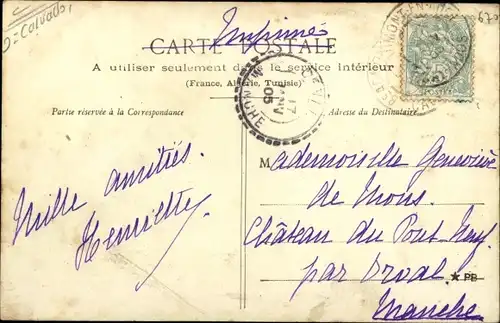 Calvados
Imprimé
670
CARTE POSTALE
A utiliser seulement dans le service Intérieur
(France, Algérie, Tunisie)
Partie réservée à la Correspondance
Adresse du Destinataire
17
05
MANCHE
Mademoiselle Geneviève
de Mons
Château du Pont-Neuf
par
Manche
★ PB
Mille amitiés
Henriette